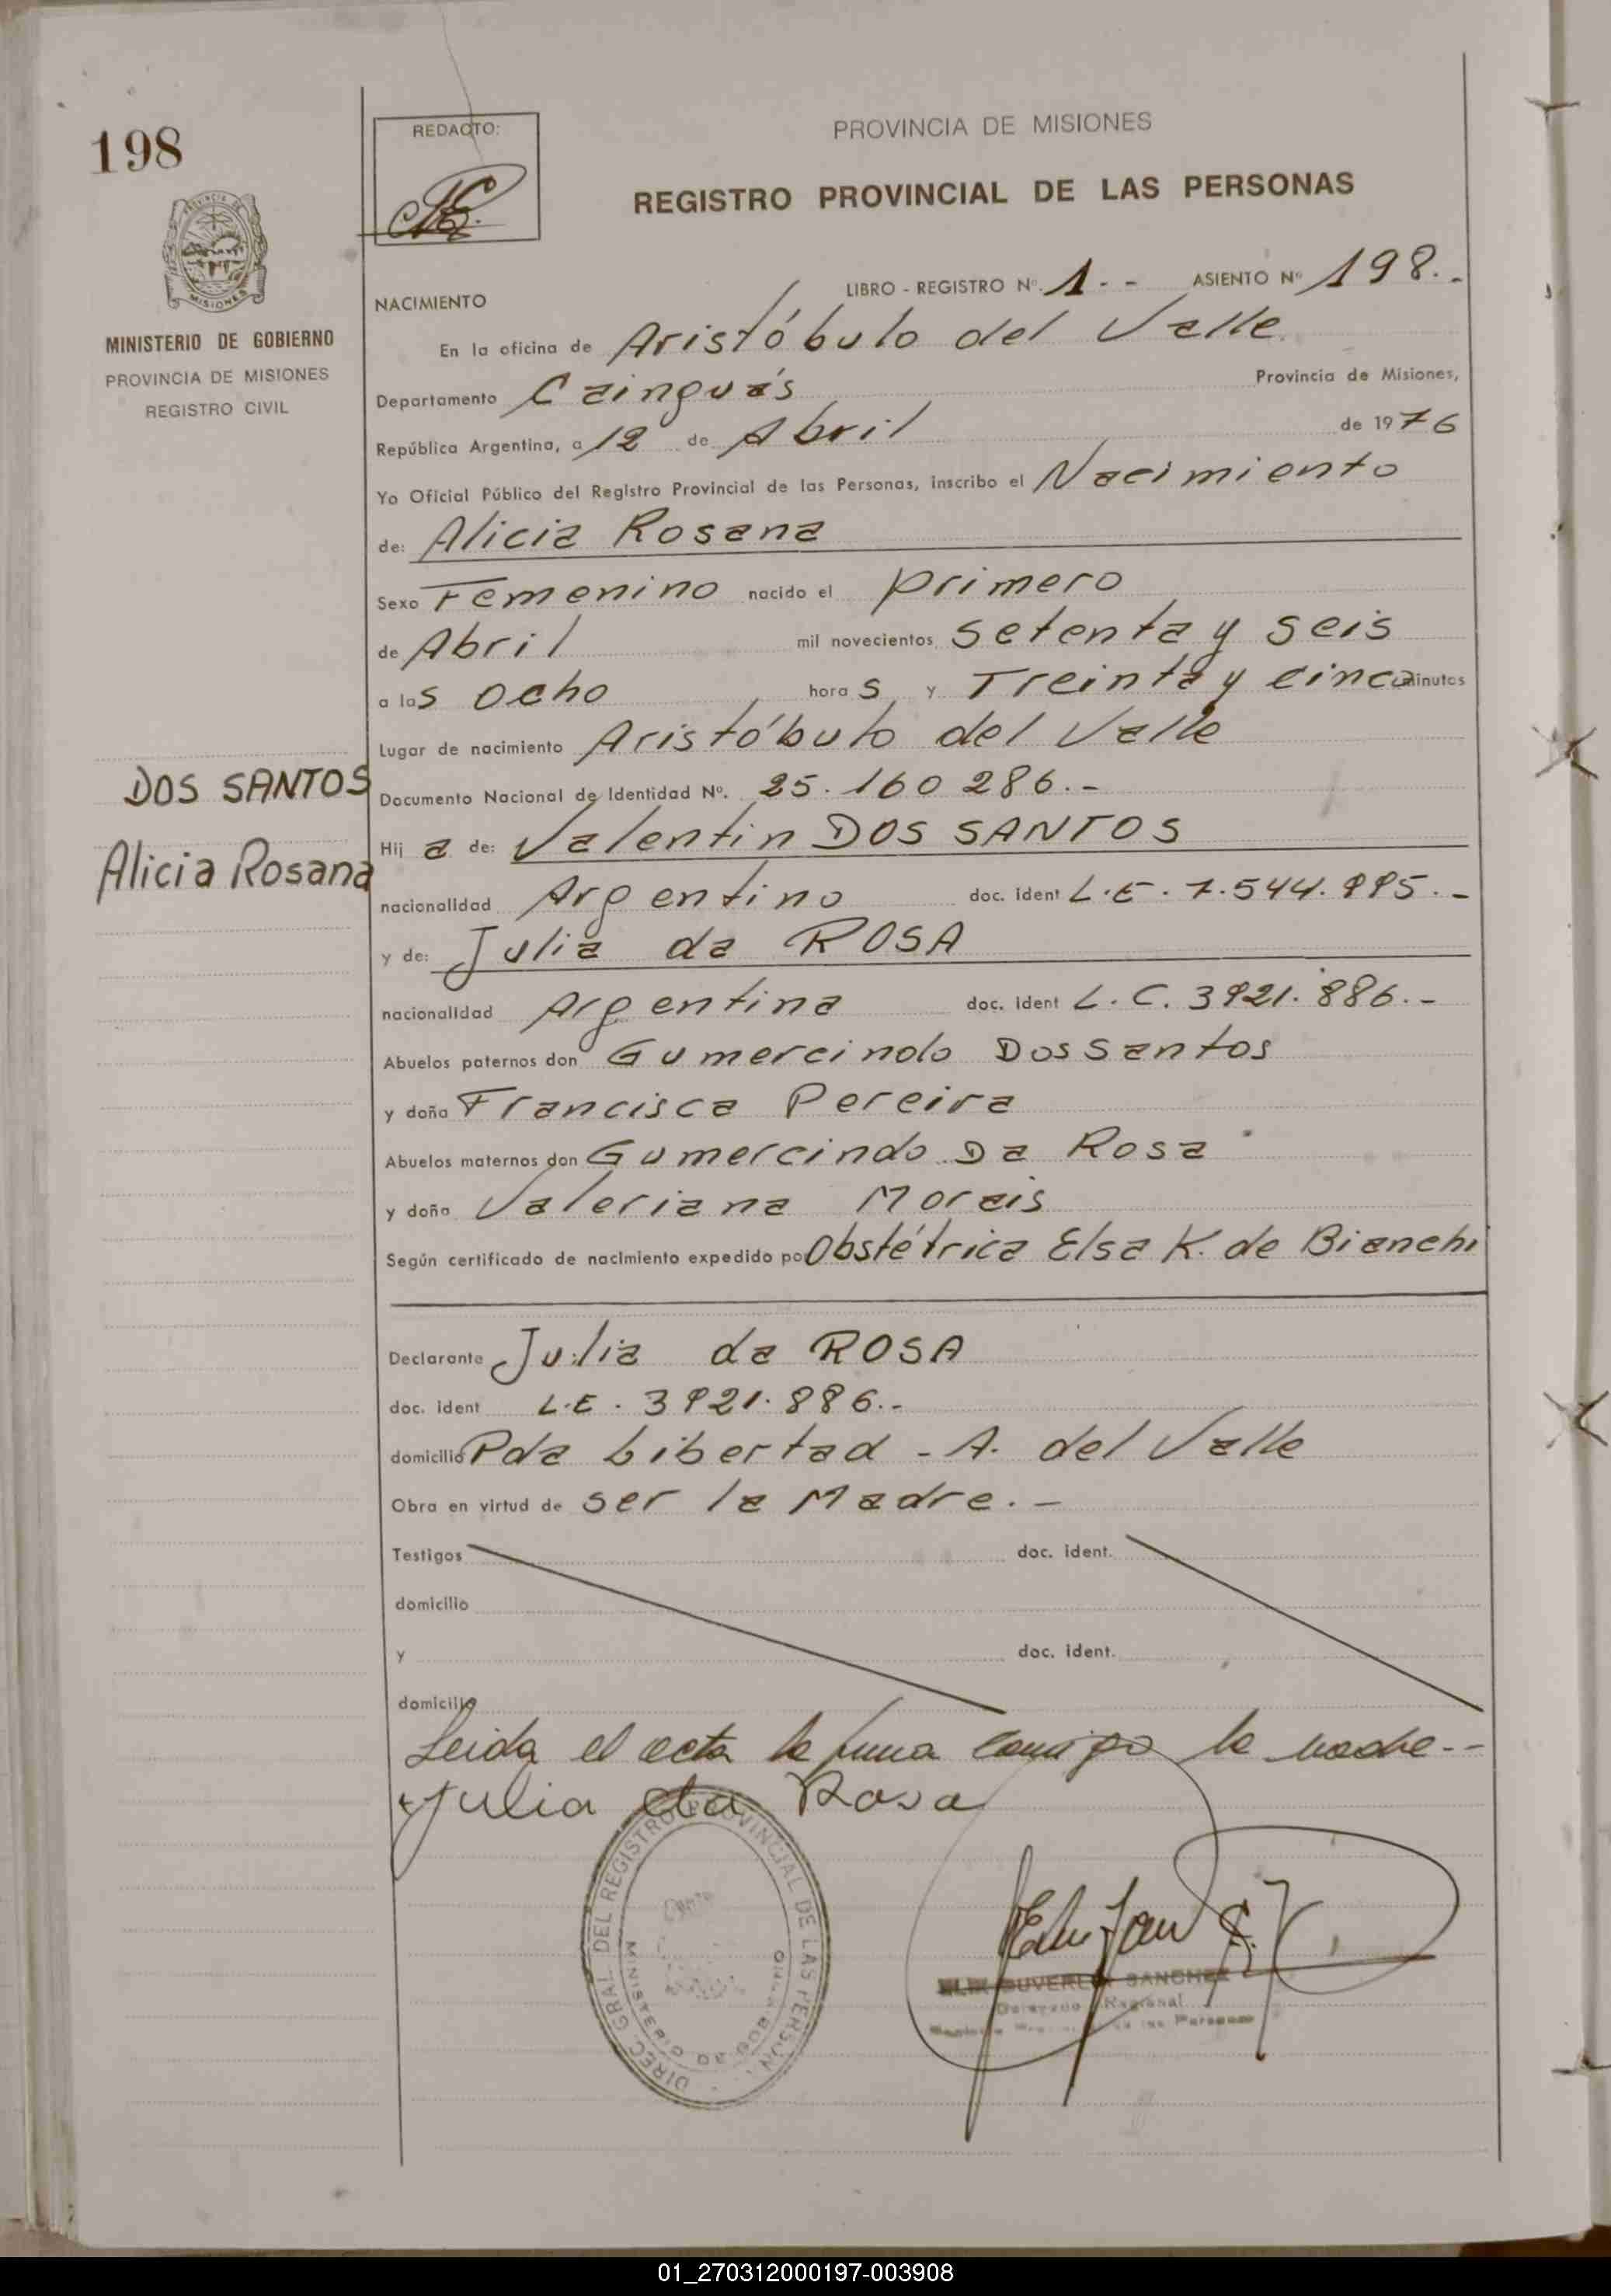 198
REDACTO:
PROVINCIA DE MISIONES
REGISTRO PROVINCIAL DE LAS PERSONAS
MISIONES
MINISTERIO DE GOBIERNO
PROVINCIA DE MISIONES
REGISTRO CIVIL
LIBRO - REGISTRO Nº. 1.-- ASIENTO Nº 198.-
NACIMIENTO
En la oficina de Aristóbulo del Valle
Departamento Cainguás Provincia de Misiones,
República Argentina, a 12 de Abril de 1976
Yo Oficial Público del Registro Provincial de las Personas, inscribo el Nacimiento
de: Alicia Rosana
Sexo Femenino nacido el primero
de Abril mil novecientos setenta y seis
a las ocho horas y Treinta y cinco minutos
Lugar de nacimiento Aristóbulo del Valle
DOS SANTOS
Alicia Rosana
Documento Nacional de Identidad Nº. 25.160 286.-
Hija de: Valentin DOS SANTOS
nacionalidad Argentino doc. ident L.E. 7.544.995.-
y de: Julia da ROSA
nacionalidad Argentina doc. ident L.C. 3921.886.-
Abuelos paternos don Gumercindo Dos Santos
y doña Francisca Pereira
Abuelos maternos don Gumercindo Da Rosa
y doña Valeriana Morais
Según certificado de nacimiento expedido po Obstétrica Elsa K. de Bianchi
Declarante Julia da ROSA
doc. ident L.E. 3921.886.-
domicilio Pda Libertad - A. del Valle
Obra en virtud de ser la Madre.-
Testigos doc. ident.
domicilio
y doc. ident.
domicilio
Leida el acta la firma conmigo la madre--
Julia da Rosa
DIREC. GRAL. DEL REGISTRO PROVINCIAL DE LAS PERSON.
MINISTERIO DE GOBIERNO
SANCHEZ
Delegado Regional
01_270312000197-003908